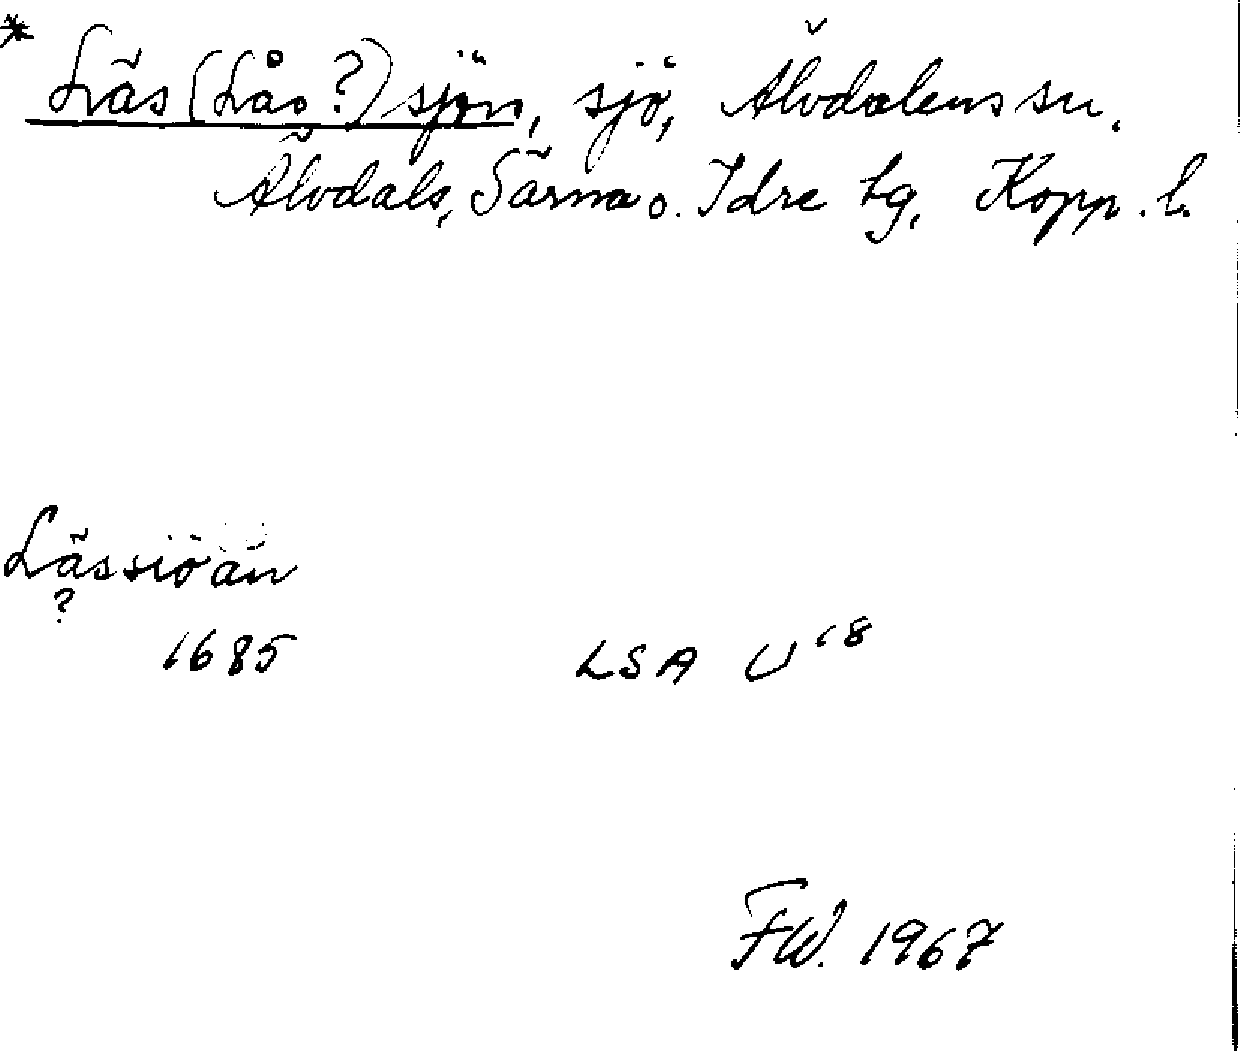 * Läs (Lås ?) sjön, sjö, Älvdalens sn.
Älvdals, Särna o. Idre tg, Kopp. l.
Lässiöän
?
1685 LSA U18
FW. 1967